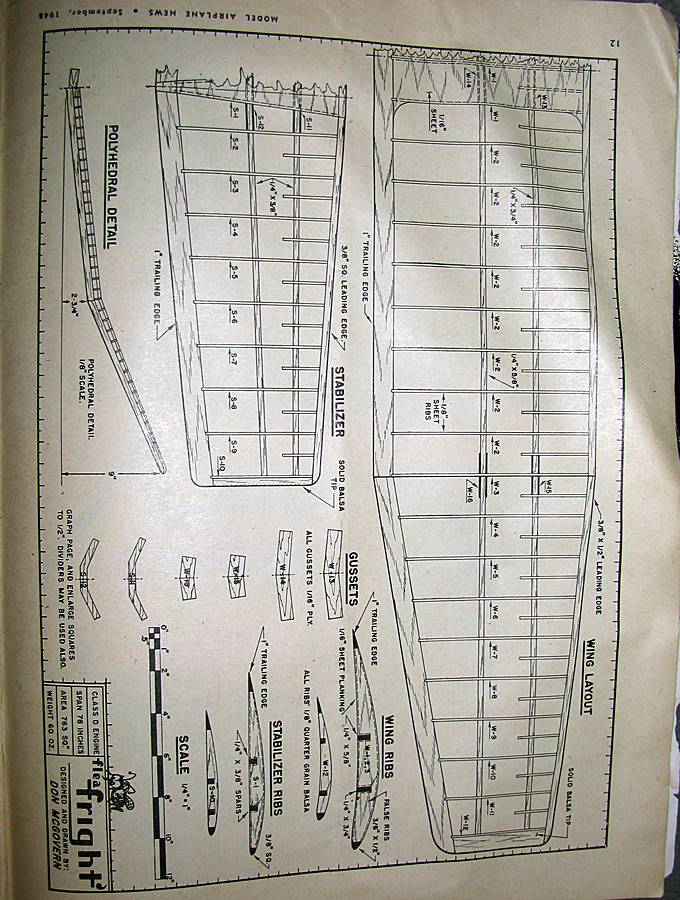 12
MODEL AIRPLANE NEWS • September, 1948
WING LAYOUT
W-14
W-1
W-13
1/16"
SHEET
W-1
W-2
W-2
1/4" X 3/4"
W-2
W-2
W-2
W-2
1/4" X 5/8"
W-2
W-2
1/8"
SHEET
RIBS
W-2
W-3
W-15
W-16
W-4
W-5
W-6
W-7
W-8
W-9
W-10
W-11
W-12
1" TRAILING EDGE
3/8" X 1/2" LEADING EDGE
SOLID BALSA TIP
STABILIZER
S-11
S-12
S-1
S-2
S-3
1/4" X 3/8"
S-4
S-5
S-6
S-7
S-8
S-9
S-10
3/8" SQ. LEADING EDGE
1" TRAILING EDGE
SOLID BALSA
TIP
POLYHEDRAL DETAIL
2-3/4"
9"
POLYHEDRAL DETAIL
1/8" SCALE.
GUSSETS
W-13
W-14
ALL GUSSETS 1/16" PLY.
GRAPH PAGE, AND ENLARGE SQUARES
TO 1/2". DIVIDERS MAY BE USED ALSO.
WING RIBS
1" TRAILING EDGE
1/16" SHEET PLANKING
1/4" X 5/8"
W-1,2,3
1/4" X 3/4"
FALSE RIBS
3/8" X 1/2"
W-12
ALL RIBS 1/8" QUARTER GRAIN BALSA
STABILIZER RIBS
1" TRAILING EDGE
1/4" X 3/8" SPARS
S-1
3/8" SQ.
S-10
SCALE 1/4" = 1"
0"
.5"
1"
2"
4"
6"
8"
10"
12"
CLASS D ENGINE
SPAN 78 INCHES
AREA 763 SQ"
WEIGHT 60 OZ.
flea
fright
DESIGNED AND DRAWN BY:
DON McGOVERN